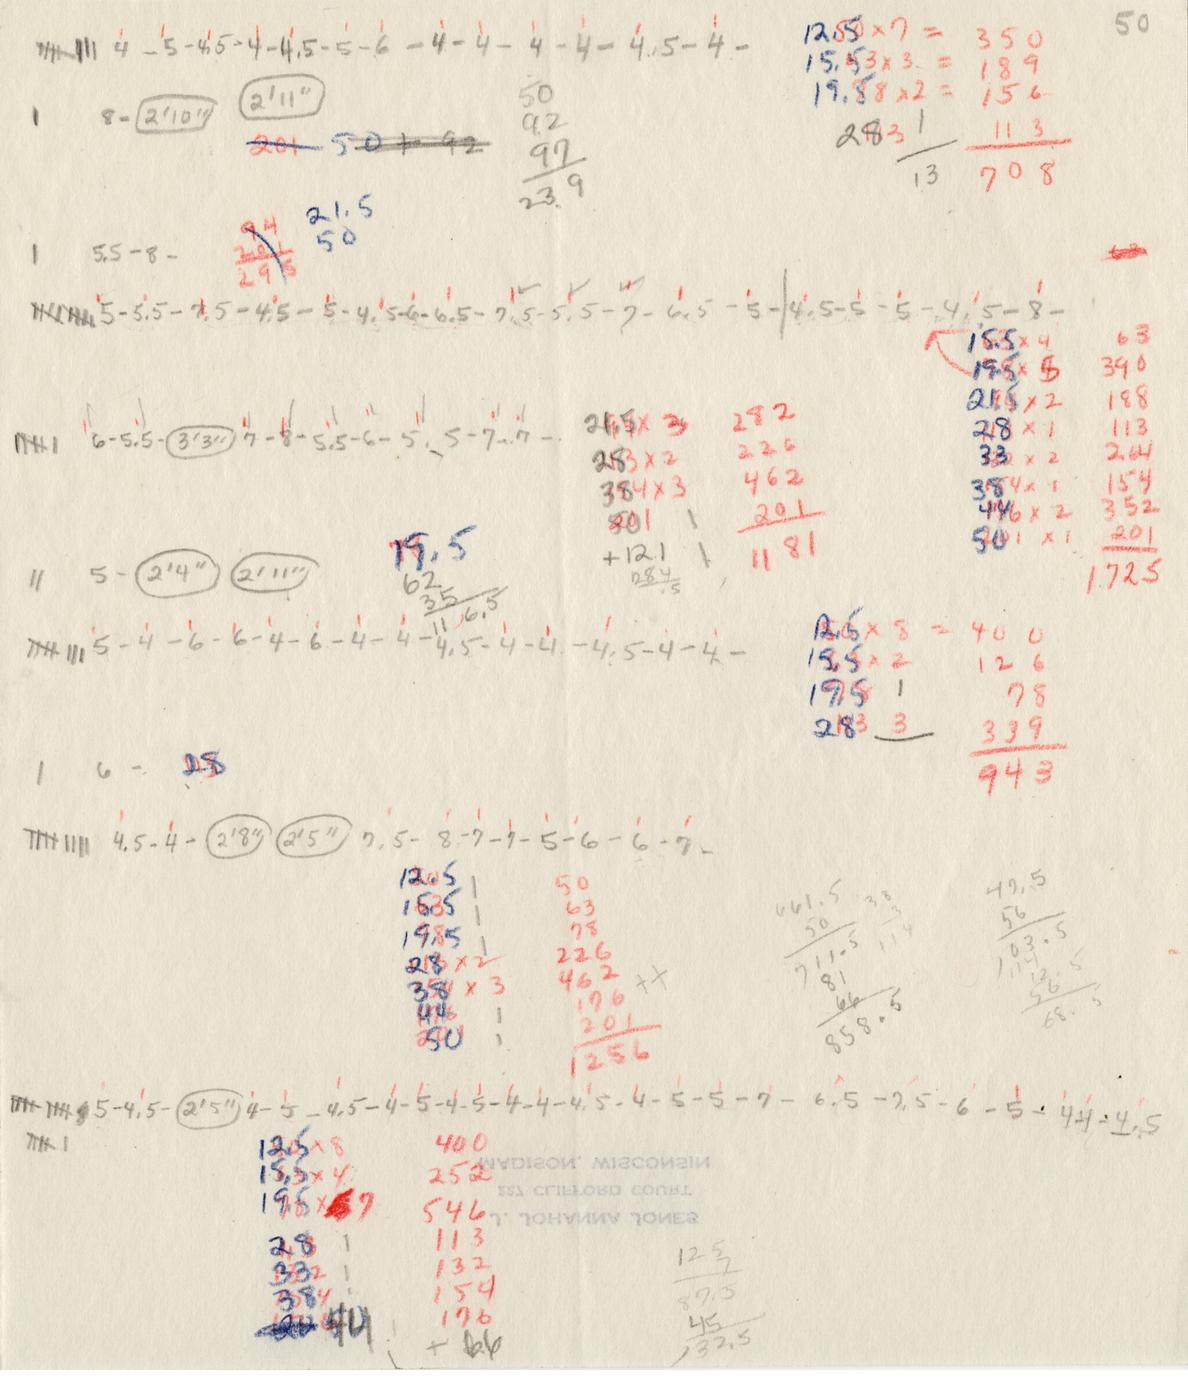 50
4 - 5 - 4.5 - 4 - 4.5 - 5 - 6 - 4 - 4 - 4 - 4 - 4.5 - 4 -
12.5 × 7 = 350
15.5 × 3 = 189
19.5 × 2 = 156
28 1 113
13 708
1 8 - 2'10" 2'11"
201 50 + 92
50
92
97
239
1 5.5 - 8 -
94
201
295
21.5
50
5 - 5.5 - 7.5 - 4.5 - 5 - 4.5 - 6 - 6.5 - 7.5 - 5.5 - 7 - 6.5 - 5 - 4.5 - 5 - 5 - 4.5 - 8 -
15.5 × 4 63
19.5 × 5 390
21.5 × 2 188
28 × 1 113
33 × 2 264
38 × 1 154
44 × 2 352
50 × 1 201
1725
6 - 5.5 - 3'3" 7 - 8 - 5.5 - 6 - 5 - 5 - 7 - 7 -
21.5 × 3 282
28 × 2 226
38 × 3 462
201 1 201
+ 121 1 1181
11 5 - 2'4" 2'11"
19.5
62
35
116.5
5 - 4 - 6 - 6 - 4 - 6 - 4 - 4 - 4.5 - 4 - 4 - 4.5 - 4 - 4 -
12.5 × 8 = 400
15.5 × 2 126
19.5 1 78
28 3 339
943
1 6 - 28
4.5 - 4 - 2'8" 2'5" 7.5 - 8 - 7 - 7 - 5 - 6 - 6 - 7 -
12.5 1 50
15.5 1 63
19.5 1 78
28 × 2 226
38 × 3 462 ++
44 1 176
50 1 201
1256
661.5
50
711.5
81
66
858.5
38
3
114
47.5
56
103.5
12.5
56
68.5
5 - 4.5 - 2'5" 4 - 5 - 4.5 - 4 - 5 - 4 - 5 - 4 - 4 - 4.5 - 4 - 5 - 5 - 7 - 6.5 - 7.5 - 6 - 5 - 4 - 4 - 4.5
12.5 × 8 400
15.5 × 4 252
19.5 × 7 546
28 1 113
33 1 132
38 1 154
44 176
+ 66
MADISON, WISCONSIN
227 CLIFFORD COURT
J. JOHANNA JONES
12.5
7
87.5
45
132.5